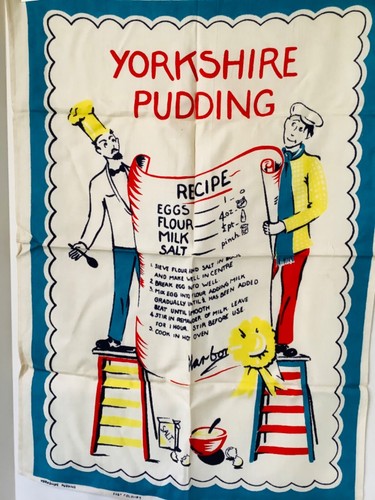 YORKSHIRE
PUDDING
RECIPE
EGGS 1.
FLOUR 4oz.
MILK ½pt.
SALT pinch
1. SIEVE FLOUR AND SALT IN BOWL
AND MAKE WELL IN CENTRE
2. BREAK EGG INTO WELL
3. MIX EGG INTO FLOUR ADDING MILK
GRADUALLY UNTIL ½ HAS BEEN ADDED
BEAT UNTIL SMOOTH
4. STIR IN REMAINDER OF MILK LEAVE
FOR 1 HOUR. STIR BEFORE USE
5. COOK IN HOT OVEN
YORKSHIRE PUDDING
FAST COLOURS